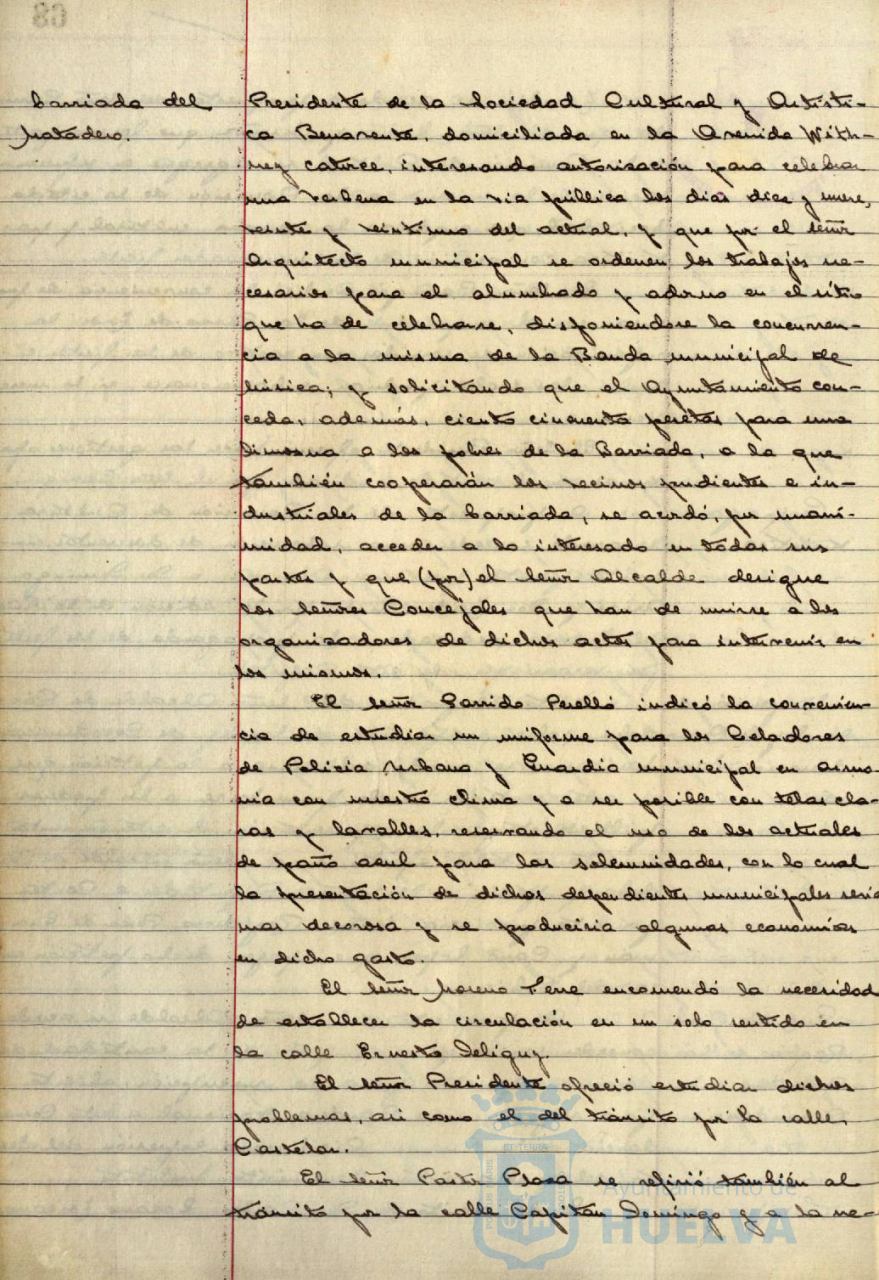 barriada del
Matadero.
Presidente de la Sociedad Cultural y Artísti-
ca Benavente, domiciliada en la Avenida With-
ney catorce, interesando autorización para celebrar
una verbena en la via pública los dias diez y nueve,
veinte y veintiuno del actual, y que por el señor
Arquitecto municipal se ordenen los trabajos ne-
cesarios para el alumbrado y adorno en el sitio
que ha de celebrarse, disponiendose la concurren-
cia a la misma de la Banda municipal de
Música; y solicitando que el Ayuntamiento con-
ceda, además, ciento cincuenta pesetas para una
limosna a los pobres de la Barriada, a la que
también cooperarán los vecinos pudientes e in-
dustriales de la barriada, se acordó, por unani-
midad, acceder a lo interesado en todas sus
partes y que (por) el señor Alcalde designe
los señores Concejales que han de unirse a los
organizadores de dichos actos para intervenir en
los mismos.
El señor Garrido Perelló indicó la convenien-
cia de estudiar un uniforme para los Celadores
de Policía Urbana y Guardia municipal en armo-
nia con nuestro clima y a ser posible con telas cla-
ras y lavables, reservando el uso de los actuales
de paño azul para las solemnidades, con lo cual
la presentación de dichos dependientes municipales seria
mas decorosa y se produciria algunas economías
en dicho gasto.
El señor Moreno encomendó la necesidad
de establecer la circulación en un solo sentido en
la calle Ernesto Deligny.
El señor Presidente ofreció estudiar dichos
problemas, asi como el del tránsito por la calle
Castelar.
El señor Plaza se refirió también al
tránsito por la calle Capitán Domingo y a la ne-
Ayuntamiento de
HUELVA